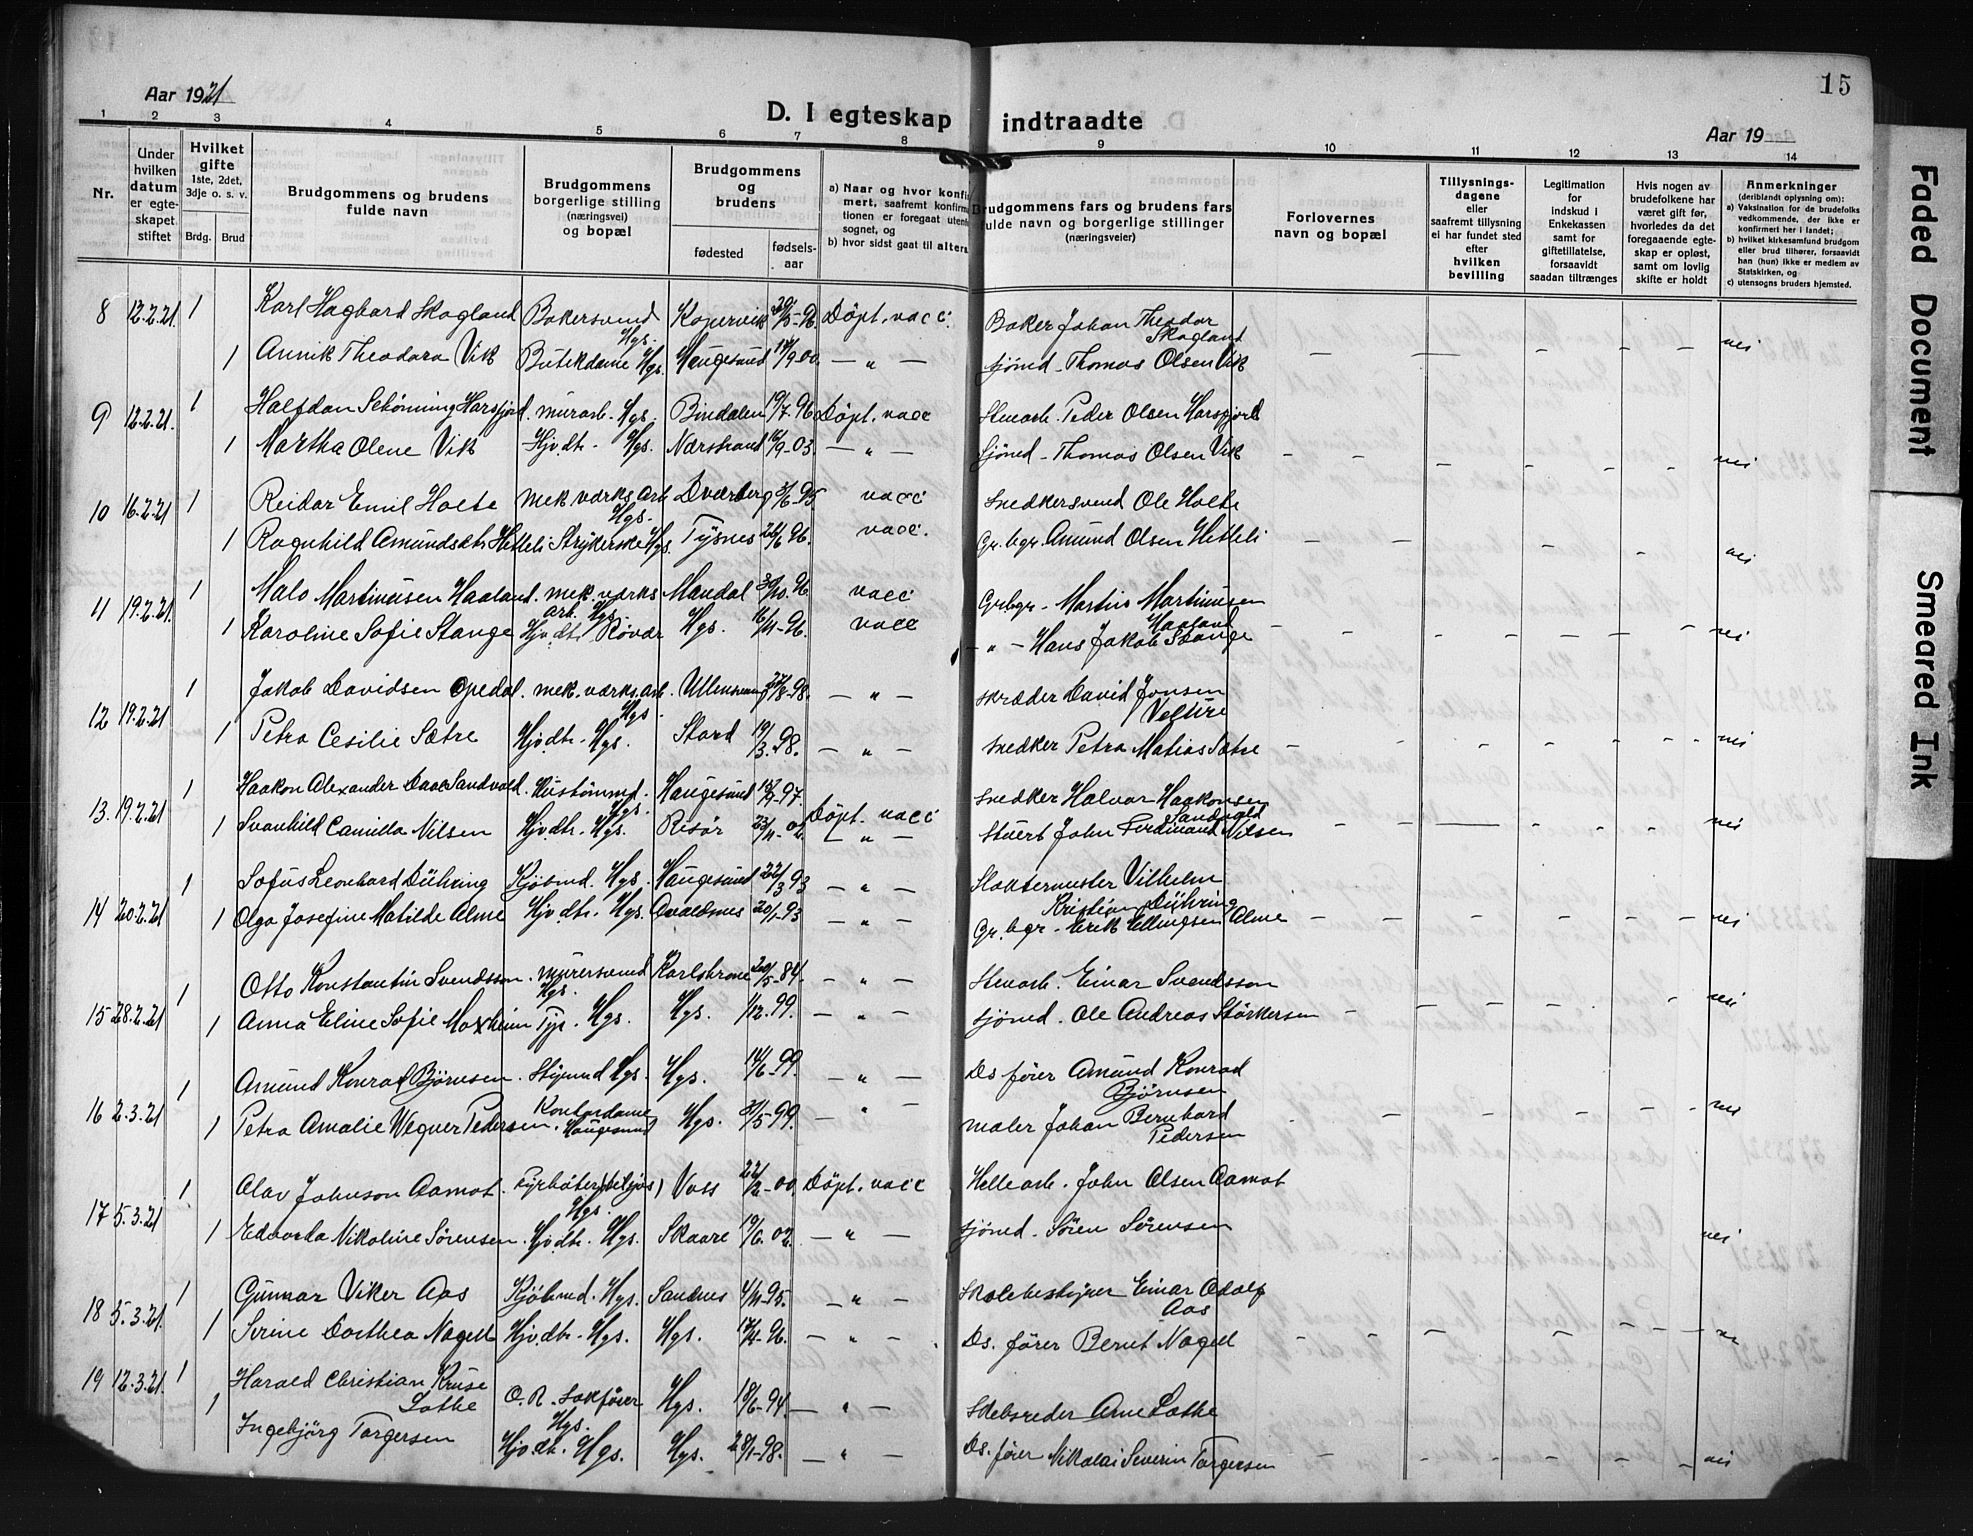 15
Aar 1921
D. I egteskap indtraadte
Aar 19
1 2 3 4 5 6 7 8 9 10 11 12 13 14
Nr.
Under hvilken datum er egteskapet stiftet
Hvilket gifte 1ste, 2det, 3dje o. s. v.
Brdg. Brud
Brudgommens og brudens fulde navn
Brudgommens borgerlige stilling (næringsvei) og bopæl
Brudgommens og brudens
fødested
fødsels-aar
a) Naar og hvor konfirmert, saafremt konfirmationen er foregaat utensognet, og
b) hvor sidst gaat til alters
Brudgommens fars og brudens fars fulde navn og borgerlige stillinger (næringsveier)
Forlovernes navn og bopæl
Tillysnings-dagene eller saafremt tillysning ei har fundet sted efter hvilken bevilling
Legitimation for indskud i Enkekassen samt for giftetillatelse, forsaavidt saadan tiltrænges
Hvis nogen av brudefolkene har været gift før, hvorledes da det foregaaende egteskap er opløst, samt om lovlig skifte er holdt
Anmerkninger (deriblandt oplysning om):
a) Vaksination for de brudefolks vedkommende, der ikke er konfirmert her i landet;
b) hvilket kirkesamfund brudgom eller brud tilhører, forsaavidt han (hun) ikke er medlem av Statskirken, og
c) utensogns bruders hjemsted.
8 12.2.21. 1 Karl Hagbard Skogland Bakersvend Hgs. Kopervik 20/5-96. Döpt. vacc. Baker Johan Theodor Skogland
1 Annik Theodora Vik Butikdame Hgs. Haugesund 14/9 00. — " — sjömd. Thomas Olsen Vik — — — — — nei
9 12.2.21. 1 Halfdan Schönning Horsfjord. murarb. Hgs. Bindalen 19/7 96 Döpt. vacc Stenarb. Peder Olsen Horsfjord
1 Martha Olene Vik Hjv.dtr. Hgs. Nærstrand 16/9-03. — " — Sjömd. Thomas Olsen Vik — — — — — nei
10 16.2.21 1 Reidar Emil Holte mek. værks. arb Hgs. Dverberg 3/6-95 vacc Snedkersvend Ole Holte
1 Ragnhild Amundsdtr. Hetleli Strykerske Hgs. Tysnes 26/6 96. vacc. Gr.bgr. Amund Olsen Hetleli — — — — — nei
11 19.2.21. 1 Malo Martinusen Haaland. mek. værks arb. Hgs. Mandal 30/10. 96. vacc Gr.bgr. Martin Martinusen Haaland
1 Karoline Sofie Stange Hjv.dtr. Røvær Hgs. 16/11-96. vacc — " — Hans Jakob Stange — — — — — nei
12 19.2.21 1 Jakob Davidsen Opedal. mek. værks. arb. Hgs. Ullensvang 24/8-98. — " — skræder David Jonsen Velure
1 Petra Cesilie Sætre Hjv.dtr. Hgs. Stord 19/3-98. — " — snedker Petra Matias Sætre — — — — — nei
13. 19.2.21 1 Haakon Alexander Daae Sandvold. Hustömmd. Hgs. Haugesund 18/9-97. Döpt. vacc Snedker Halvor Haakonsen Sandvold
1 Svanhild Camilla Nilsen Hjv.dtr. Hgs. Risör 23/11-02. — " — Stuert John Ferdinand Nilsen — — — — nei
14 20.2.21 1 Sofus Leonhard Dühring Kjöbmd. Hgs. Haugesund 22/3 93 — " — Slaktermester Vilhelm Kristian Dühring
1 Olga Josefine Matilde Alme Hjv.dtr. Hgs. Avaldsnes 20/1-93 — " — Gr.bgr. Erik Ellingsen Alme — — — — — nei
15 28.2.21 1 Otto Konstantin Svendsson. murersvend Hgs. Karlskrone 20/5-84. — " — Stenarb. Einar Svendsson
1 Anna Eline Sofie Moxheim Typ. Hgs. Hgs. 1/12.99. — " — sjömd. Ole Andreas Störkersen — — — — — nei
16 2.3.21 1 Amund Konrad Björnsen. Styrmd Hgs. Hgs. 14/6-99. — " — Ds förer Amund Konrad Björnsen
1 Petra Amalie Wegner Pedersen. Kontordame Haugesund Hgs. 31/5-99. — " — maler Johan Bernhard Pedersen — — — — — nei
17 5.3.21 1 Olav Johnson Aamot. Hgs. Voss 22/12-00. Döpt. vacc Hellearb. John Olsen Aamot
1 Edvarda Nikoline Sörensen. Hjv.dtr. Hgs. Skaare 19/6. 02. — " — sjömd. Sören Sörensen nei
18 5.3.21. 1 Gunnar Viker Aas Kjöbmd. Hgs. Sandnes 4/11-95. — " — Skolebestyrer Einar Adolf Aas
1 Serine Dorthea Nagell Hjv.dtr. Hgs. Hgs. 17/4-96. — " — Ds. förer Bernt Nagell — — — — —
19 12.3.21. 1 Harald Christian Kruse Lothe O. R. Sakförer Hgs. Hgs. 18/6-94. — " — Skibsreder Arne Lothe
1 Ingebjörg Torgersen Hjv.dtr. Hgs. Hgs. 28/1-98. — " — Ds. förer Nikolai Severin Torgersen — — — — — nei
Faded Document
Smeared Ink